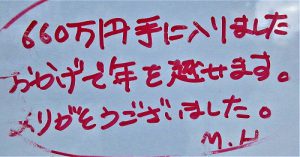 660万円手に入りました
おかげで年を越せます。
ありがとうございました。
M.H